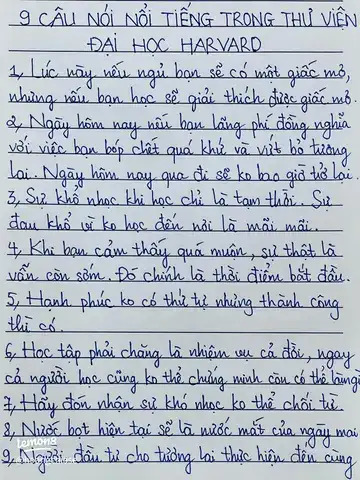 9 CÂU NÓI NỔI TIẾNG TRONG THƯ VIỆN
ĐẠI HỌC HARVARD
1, Lúc này nếu ngủ bạn sẽ có một giấc mơ,
nhưng nếu bạn học sẽ giải thích được giấc mơ.
2, Ngày hôm nay nếu bạn lãng phí đồng nghĩa
với việc bạn bóp chết quá khứ và vứt bỏ tương
lai. Ngày hôm nay qua đi sẽ ko bao giờ trở lại.
3, Sự khổ nhọc khi học chỉ là tạm thời. Sự
đau khổ vì ko học đến nơi là mãi mãi.
4, Khi bạn cảm thấy quá muộn, sự thật là
vẫn còn sớm. Đó chính là thời điểm bắt đầu.
5, Hạnh phúc ko có thứ tự nhưng thành công
thì có.
6, Học tập phải chăng là nhiệm vụ cả đời, ngay
cả người học cũng ko thể chứng minh còn có thể
7, Hãy đón nhận sự khó nhọc ko thể chối từ
8, Nước bọt hiện tại sẽ là nước mắt của ngày mai
9, Người đầu tư cho tương lai thực hiện đến cùng
temona